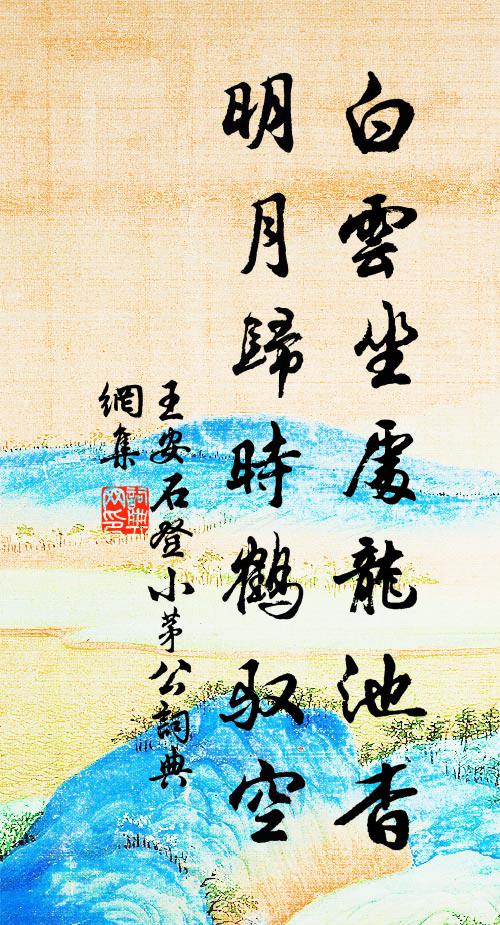 白雲坐處龍池杳
明月歸時鶴馭空
王安石登小茅公詞典
網集
詞典網印